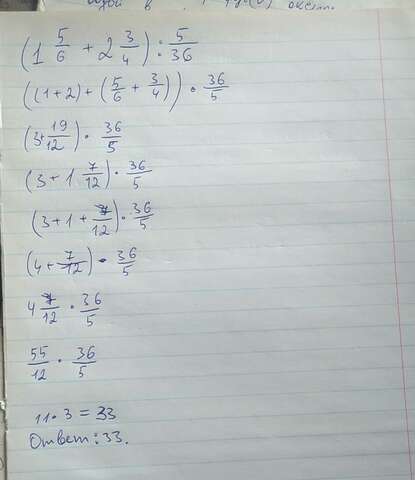 (1 5/6 + 2 3/4) : 5/36
((1+2) + (5/6 + 3/4)) · 36/5
(3+19/12) · 36/5
(3 + 1 7/12) · 36/5
(3 + 1 + 7/12) · 36/5
(4 + 7/12) · 36/5
4 7/12 · 36/5
55/12 · 36/5
11 · 3 = 33
Ответ: 33.